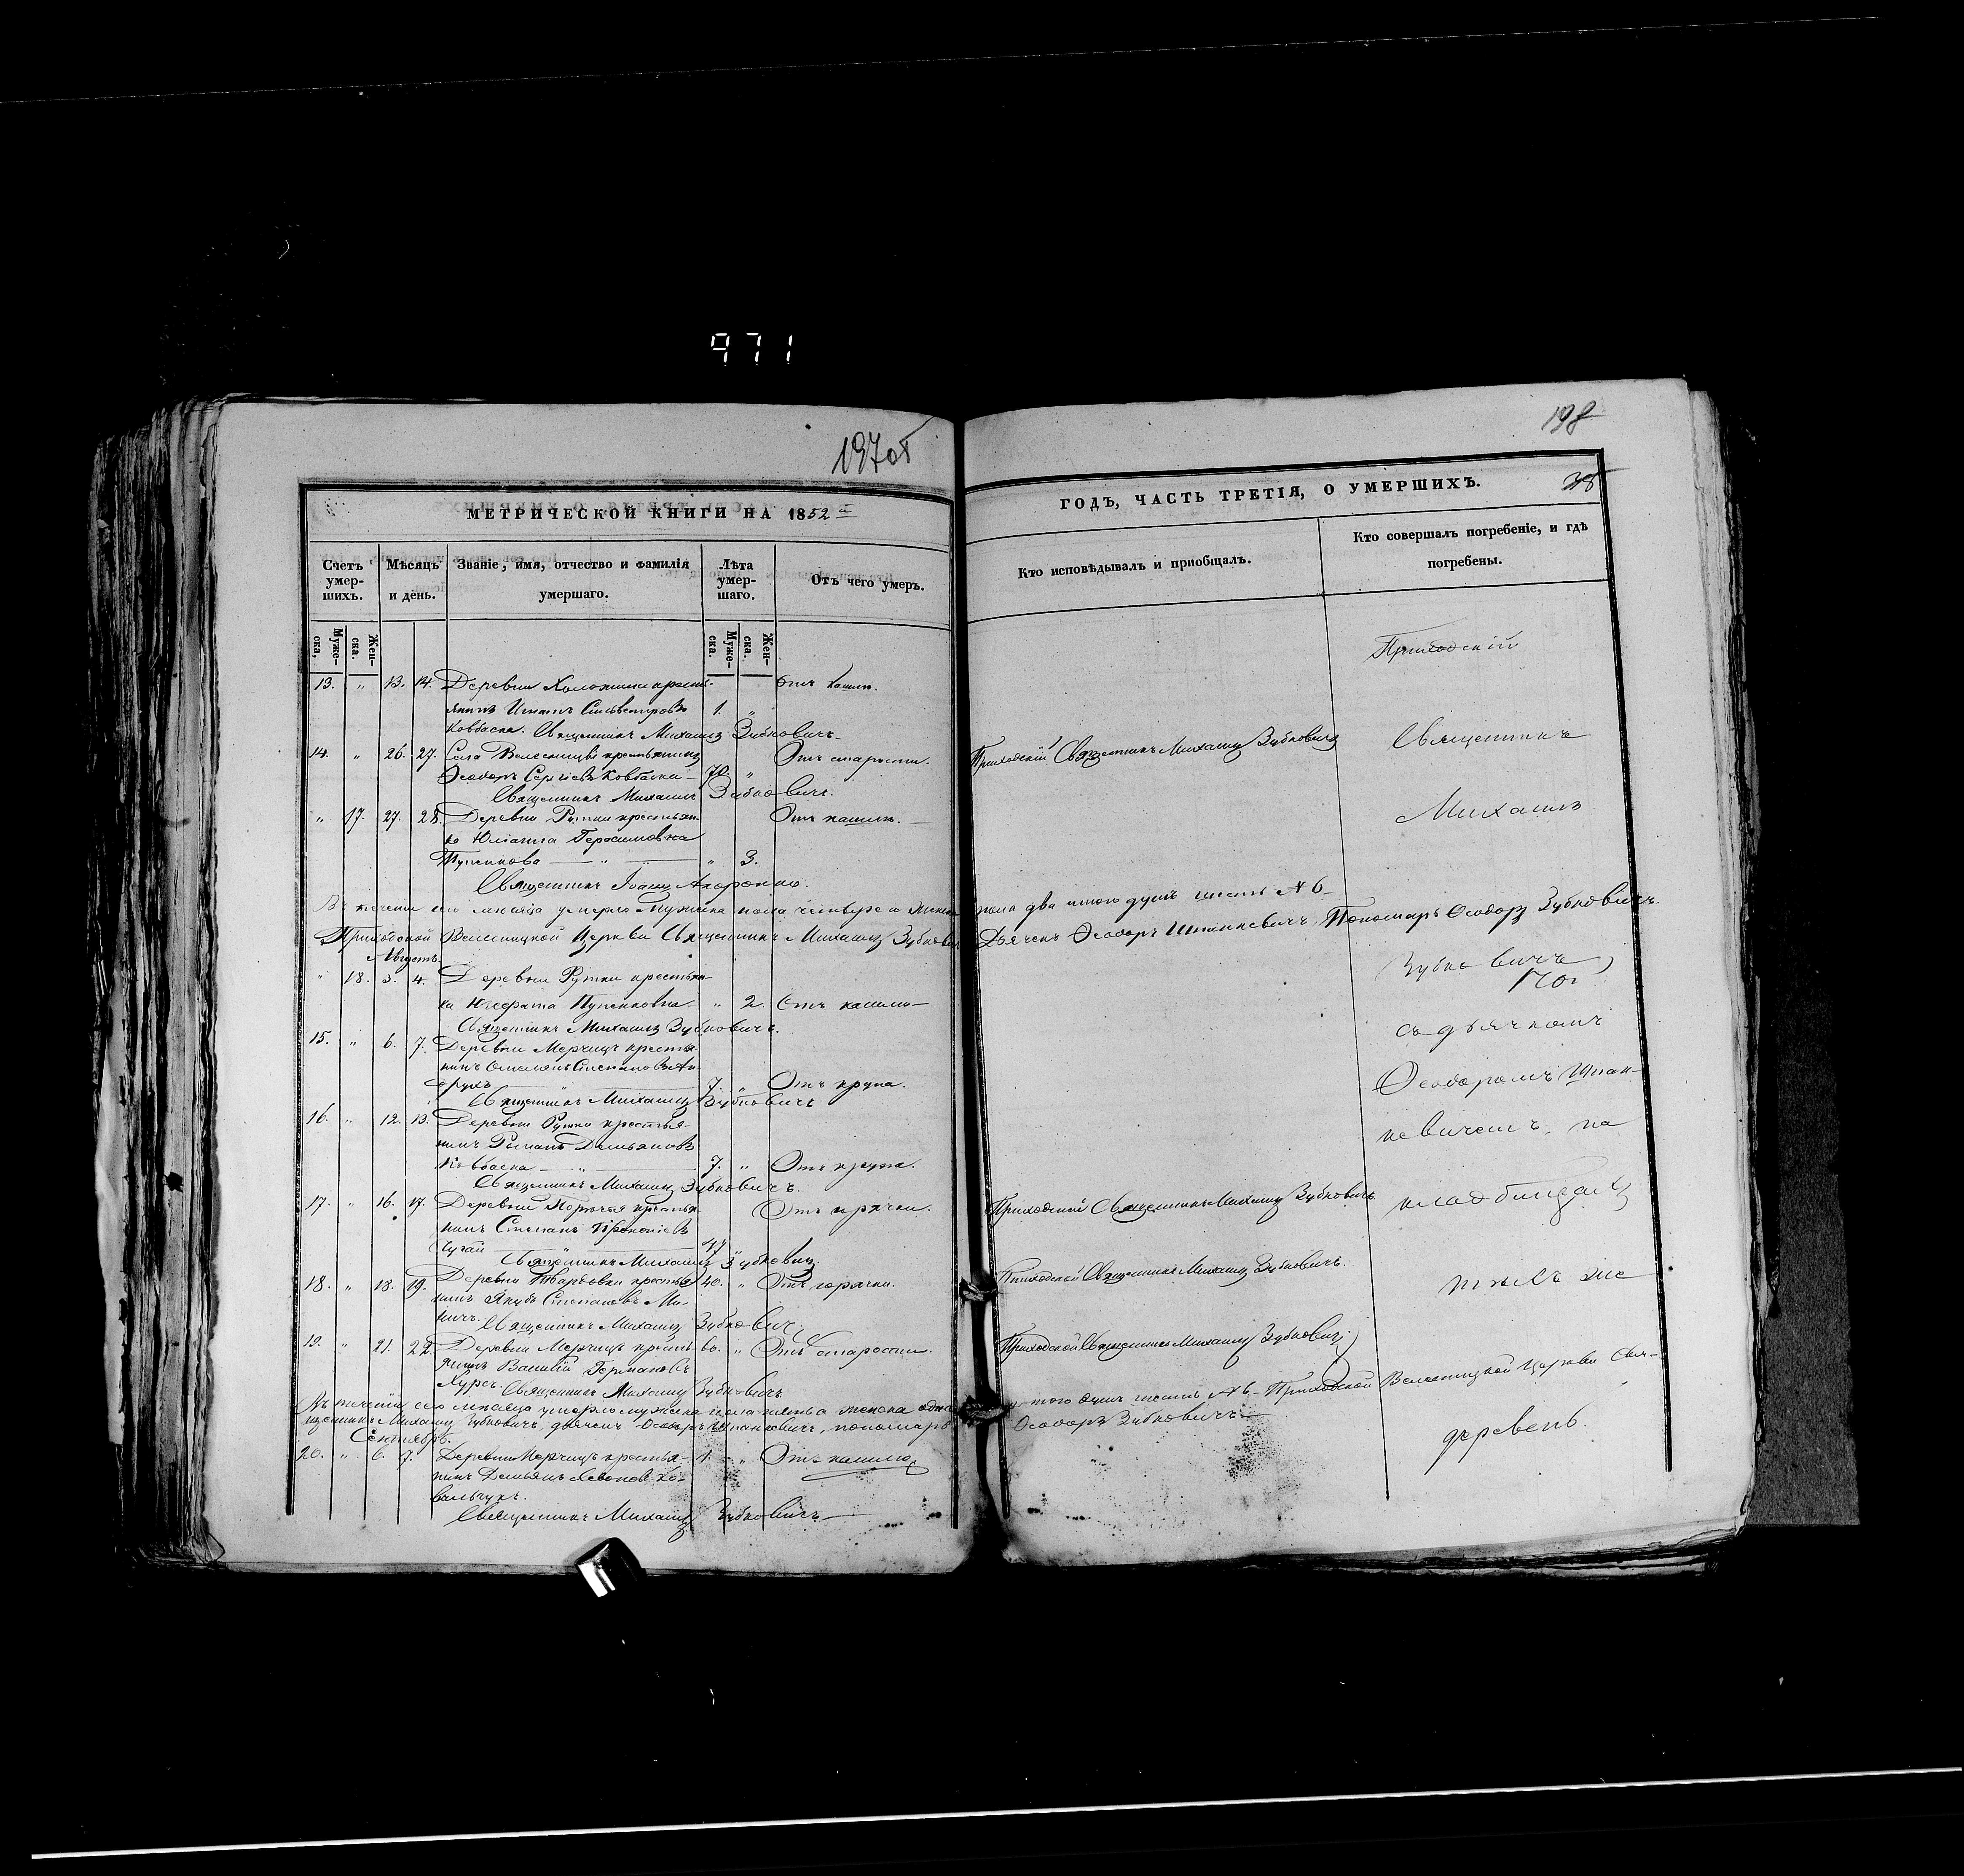 971
197об
МЕТРИЧЕСКОЙ КНИГИ НА 1852й
Счетъ умер-шихъ. Мѣсяцъ и день. Званіе, имя, отчество и фамилія умершаго. Лѣта умер-шаго. Отъ чего умеръ.
Муже-ска, Жен-ска. Муже-ска. Жен-ска.
13. „ 13. 14. Деревни кресть- Отъ кашлю.
янинъ Игнатъ Сильвестровъ 1. „
Ковбаска. Священникъ Михаилъ Зубковичъ
14. „ 26. 27. Села Велесницы крестьянинъ Отъ старости.
Ѳеодоръ Сергіевъ Ковбаска 70. „
Священникъ Михаилъ Зубковичъ.
„ 17. 27. 28. Деревни Рутки крестьян- Отъ кашлю.
ка Юліанна Герасимовна
„ 3.
Священникъ Іоаннъ
Въ теченіи сего мѣсяца умерло мужеска пола четыре а женска
Приходской Велесницкой Церкви Священникъ Михаилъ Зубковичъ
Августъ.
„ 18. 3. 4. Деревни Рутки крестьян-
ка „ 2. Отъ кашлю
Священникъ Михаилъ Зубковичъ.
15. „ 6. 7. Деревни Мерчицъ крестья-
нинъ Степановъ Ан-
7. „ Отъ крупа.
Священникъ Михаилъ Зубковичъ
16. „ 12. 13. Деревни Рутки крестья-
нинъ Романъ Демьяновъ
Ковбаска 7. „ Отъ крупа.
Священникъ Михаилъ Зубковичъ.
17. „ 16. 17. Деревни Поречья крестья-
нинъ Степанъ
47
Священникъ Михаилъ Зубковичъ.
18. „ 18. 19. Деревни крестья- 40. „ Отъ горячки.
нинъ Якубъ Степановъ Ми-
Священникъ Михаилъ Зубковичъ
19. „ 21. 22. Деревни Мерчицъ кресть- 60. „ Отъ старости.
янинъ Василій Германовъ
Священникъ Михаилъ Зубковичъ
Въ теченіи сего мѣсяца умерло мужеска пола пять а женска одна
щенникъ Михаилъ Зубковичъ, дьячекъ Ѳеодоръ Шпанкевичъ, пономарь
Сентябрь.
20. „ 6. 7. Деревни Мерчицъ крестья- 1. „ Отъ кашлю
нинъ Демьянъ Ко-
вальчукъ.
Священникъ Михаилъ Зубковичъ
198
38
ГОДЪ, ЧАСТЬ ТРЕТІЯ, О УМЕРШИХЪ.
Кто исповѣдывалъ и пріобщалъ. Кто совершалъ погребеніе, и гдѣ погребены.
Приходскій
Приходскій Священникъ Михаилъ Зубковичъ Священникъ
Михаилъ
пола два итого душъ шесть №6
Дьячекъ Ѳеодоръ Шпанкевичъ. Пономарь Ѳеодоръ Зубковичъ.
Зубковичъ
съ дьячкомъ
Ѳеодоромъ Шпан-
кевичемъ, на
Приходскій Священникъ Михаилъ Зубковичъ кладбищахъ
Приходской Священникъ Михаилъ Зубковичъ. тѣхъ же
Приходской Священникъ Михаилъ Зубковичъ
итого душъ шесть №6 Приходской Велесницкой Церкви Свя-
Ѳеодоръ Зубковичъ
деревень.